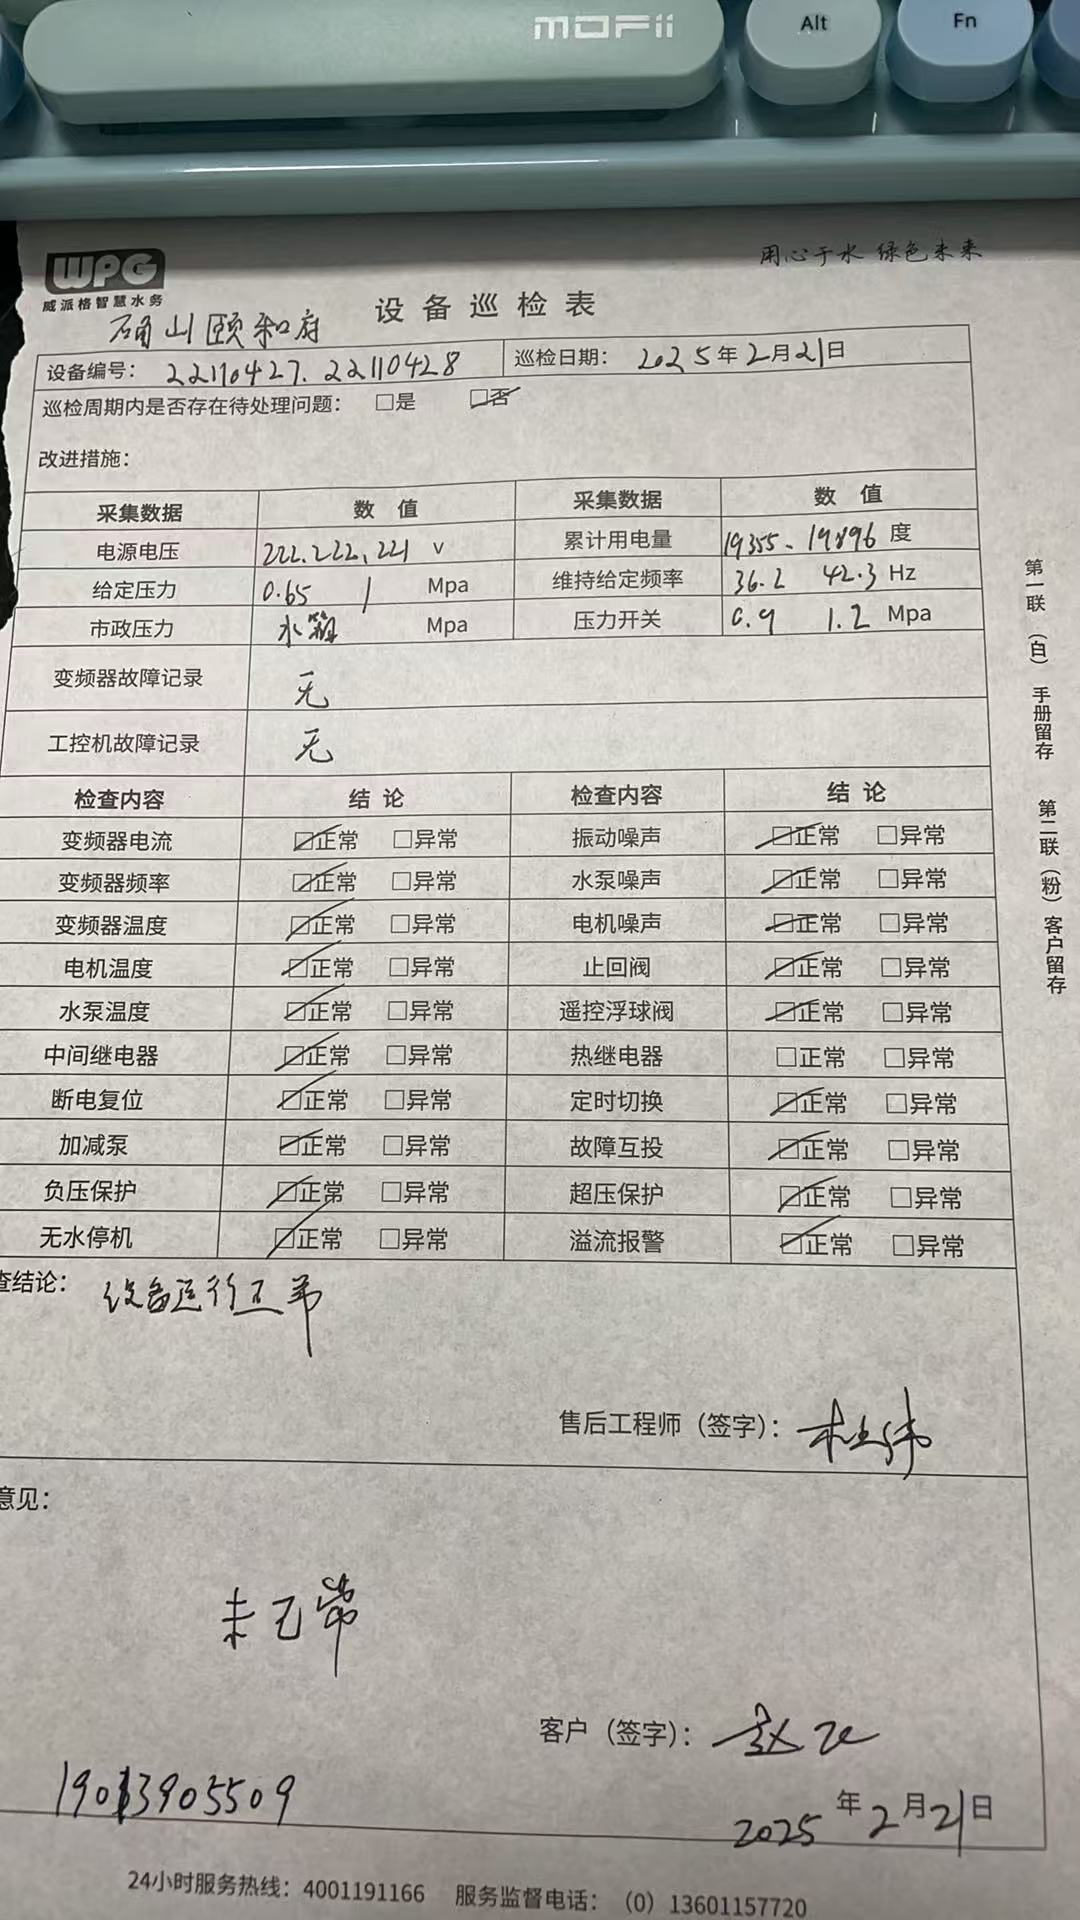 MOFii
Alt
Fn
WPG
威派格智慧水务
用心于水 绿色未来
设备巡检表
确山颐和府
设备编号： 22110427. 22110428 巡检日期： 2025年2月21日
巡检周期内是否存在待处理问题： □是 ☑否
改进措施：
采集数据 数 值 采集数据 数 值
电源电压 222.222、221 v 累计用电量 19355、19896 度
给定压力 0.65 1 Mpa 维持给定频率 36.2 42.3 Hz
市政压力 水箱 Mpa 压力开关 0.9 1.2 Mpa
变频器故障记录 无
工控机故障记录 无
检查内容 结 论 检查内容 结 论
变频器电流 ☑正常 □异常 振动噪声 ☑正常 □异常
变频器频率 ☑正常 □异常 水泵噪声 ☑正常 □异常
变频器温度 ☑正常 □异常 电机噪声 ☑正常 □异常
电机温度 ☑正常 □异常 止回阀 ☑正常 □异常
水泵温度 ☑正常 □异常 遥控浮球阀 ☑正常 □异常
中间继电器 ☑正常 □异常 热继电器 □正常 □异常
断电复位 ☑正常 □异常 定时切换 ☑正常 □异常
加减泵 ☑正常 □异常 故障互投 ☑正常 □异常
负压保护 ☑正常 □异常 超压保护 ☑正常 □异常
无水停机 ☑正常 □异常 溢流报警 ☑正常 □异常
查结论： 设备运行正常
售后工程师（签字）： 杜伟
意见：
常
客户（签字）： 赵
19013905509
2025年2月21日
24小时服务热线：4001191166 服务监督电话：（0）13601157720
第一联（白） 手册留存 第二联（粉） 客户留存